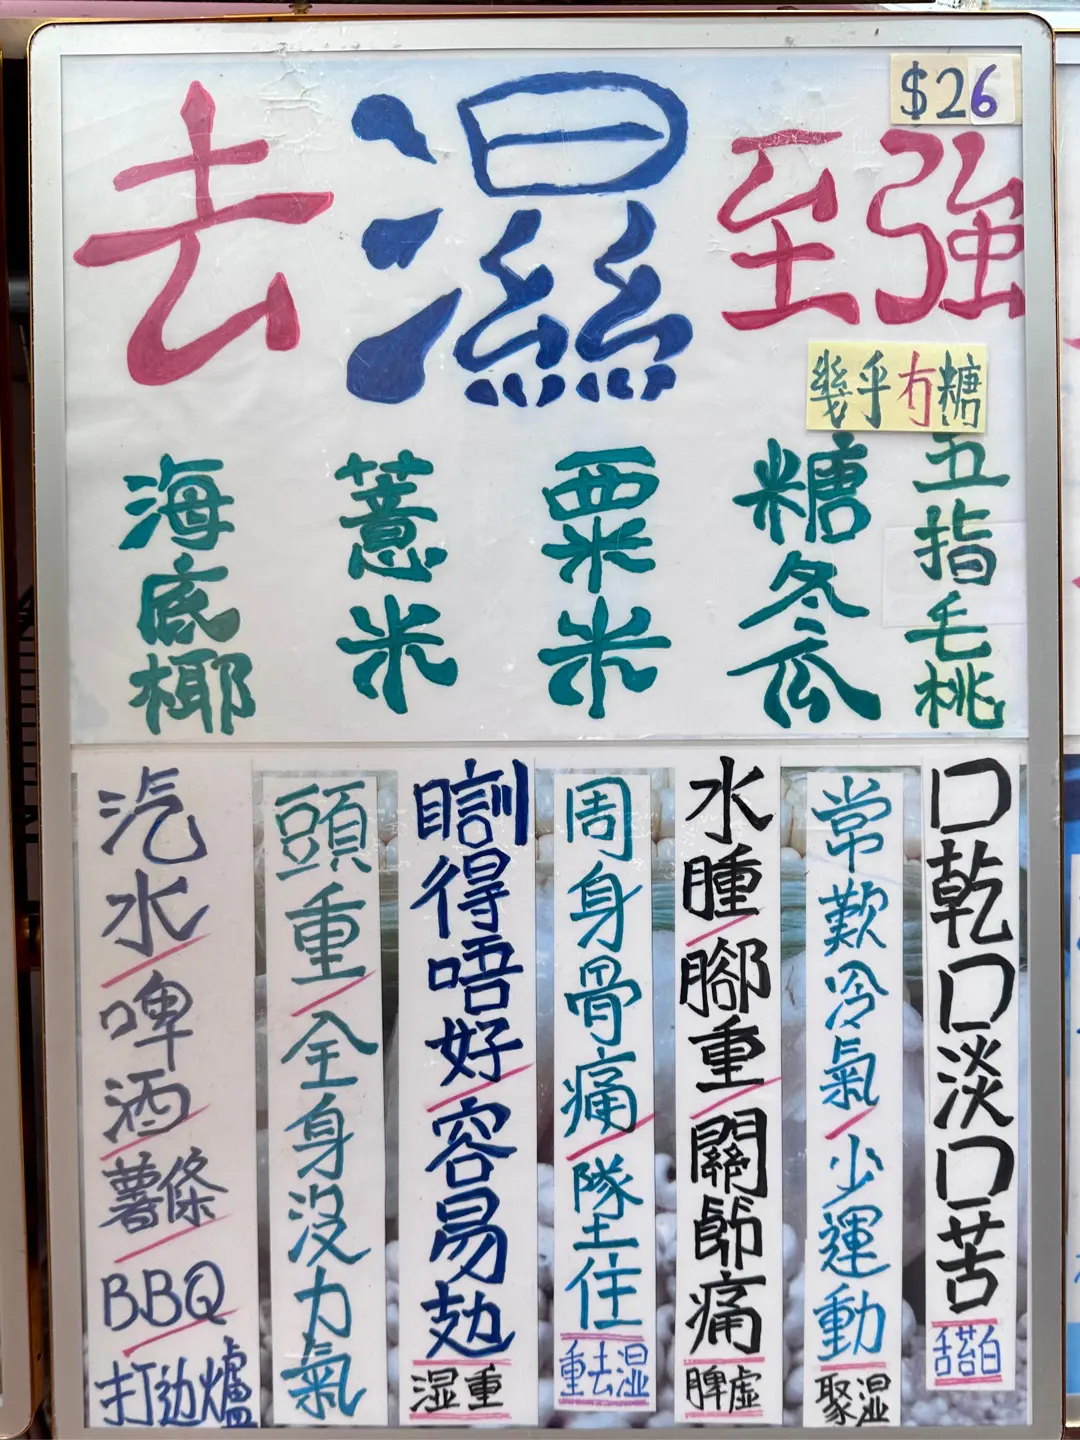 $26
去濕至強
幾乎冇糖
五指毛桃
糖冬瓜
粟米
薏米
海底椰
口乾口淡口苦
舌苔白
常歎冷氣/少運動
聚湿
水腫/腳重/關節痛
脾虛
周身骨痛/墜住
重去湿
瞓得唔好/容易攰
湿重
頭重/全身沒力氣
汽水/啤酒/薯條/BBQ/打边爐